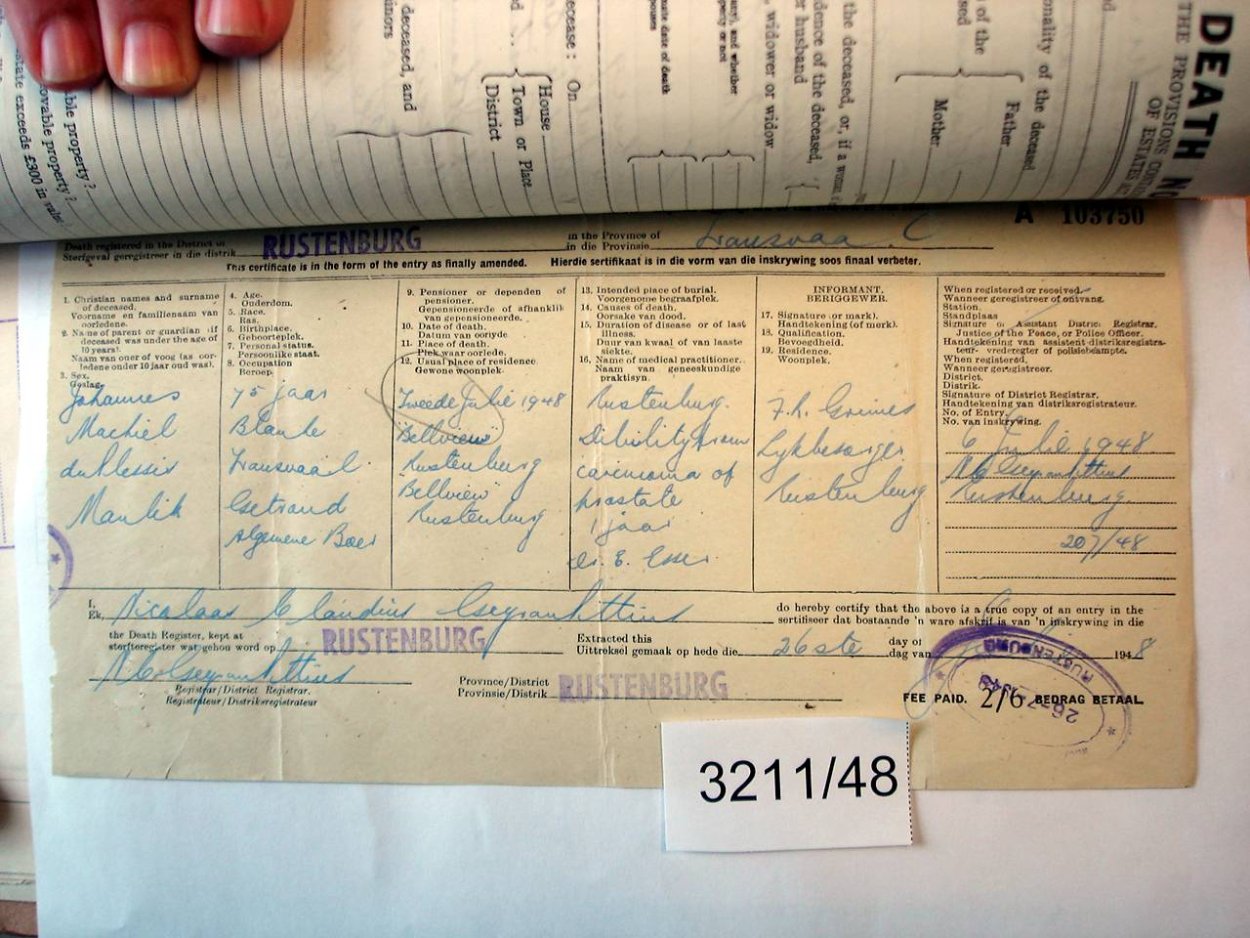 DEATH
THE PROVISIONS
OF ESTATES
onality of the deceased
Father
Mother
of the
the deceased, or, if a
dence of the deceased,
r husband
, widower or widow
and whether
or not
date of death
ecease: On
House
Town or Place
District
deceased, and
inors
ble property?
ovable property?
state exceeds £300 in
A 103750
Death registered in the District of
Sterfgeval geregistreer in die distrik
RUSTENBURG
in the Province of
in die Provinsie
Transvaal
This certificate is in the form of the entry as finally amended. Hierdie sertifikaat is in die vorm van die inskrywing soos finaal verbeter.
1. Christian names and surname
of deceased.
Voorname en familienaam van
oorledene.
2. Name of parent or guardian (if
deceased was under the age of
10 years).
Naam van ouer of voog (as oor-
ledene onder 10 jaar oud was).
3. Sex.
Geslag.
Johannes
Machiel
du Plessis
Manlik
4. Age.
Ouderdom.
5. Race.
Ras.
6. Birthplace.
Geboorteplek.
7. Personal status.
Persoonlike staat.
8. Occupation
Beroep.
75 jaar
Blanke
Transvaal.
Getroud
Algemene Boer
9. Pensioner or dependen of
pensioner.
Gepensioneerde of afhanklik
van gepensioneerde.
10. Date of death.
Datum van oorlyde
11. Place of death.
Plek waar oorlede.
12. Usual place of residence.
Gewone woonplek.
Tweede Julie 1948
"Bellview"
Rustenburg
Bellview"
Rustenburg
13. Intended place of burial.
Voorgenome begraafplek.
14. Causes of death.
Oorsake van dood.
15. Duration of disease or of last
illness.
Duur van kwaal of van laaste
siekte.
16. Name of medical practitioner.
Naam van geneeskundige
praktisyn.
Rustenburg.
Dibility from
carcinoma of
prostate
1 jaar
Dr. E. Esser.
INFORMANT.
BERIGGEWER.
17. Signature (or mark).
Handtekening (of merk).
18. Qualification.
Bevoegdheid.
19. Residence.
Woonplek.
Lykbesorger
Rustenburg
When registered or received.
Wanneer geregistreer of ontvang.
Station.
Standplaas
Signature of Assistant District Registrar,
Justice of the Peace, or Police Officer.
Handtekening van assistent-distriksregistra-
teur- vrederegter of polisiebeampte.
When registered.
Wanneer geregistreer.
District.
Distrik.
Signature of District Registrar.
Handtekening van distriksregistrateur.
No. of Entry.
No. van inskrywing.
6 Julie 1948
Rustenburg
207/48
I,
Ek, Nicolaas Claudius Gey van Pittius
do hereby certify that the above is a true copy of an entry in the
sertifiseer dat bostaande 'n ware afskrif is van 'n inskrywing in die
the Death Register, kept at
sterfteregister wat gehou word op
RUSTENBURG
Extracted this
Uittreksel gemaak op hede die
26ste
day of
dag van
1948
Registrar/District Registrar.
Registrateur/Distriksregistrateur
Province/District
Provinsie/Distrik
RUSTENBURG
FEE PAID. 2/6 BEDRAG BETAAL
RUSTENBURG
26-7-1948
3211/48